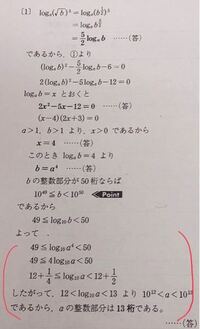 〔1〕 logₐ(√b)⁵=logₐ(b^{1/2})⁵
=logₐb^{5/2}
=5/2 logₐb ……(答)
であるから、①より
(logₐb)²−5/2 logₐb−6=0
2(logₐb)²−5logₐb−12=0
logₐb=x とおくと
2x²−5x−12=0 ……(答)
(x−4)(2x+3)=0
a>1, b>1 より, x>0 であるから
x=4 ……(答)
このとき logₐb=4 より
b=a⁴ ……(答)
bの整数部分が50桁ならば
10⁴⁹≦b<10⁵⁰ Point
であるから
49≦log₁₀b<50
よって
49≦log₁₀a⁴<50
49≦4log₁₀a<50
12+1/4≦log₁₀a<12+1/2
したがって, 12<log₁₀a<13 より 10¹²<a<10¹³
であるから, aの整数部分は13桁である。
……(答)